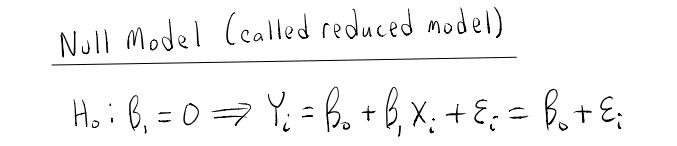 Null Model (called reduced model)
H₀: β₁ = 0 ⟹ Yᵢ = β₀ + β₁Xᵢ + εᵢ = β₀ + εᵢ